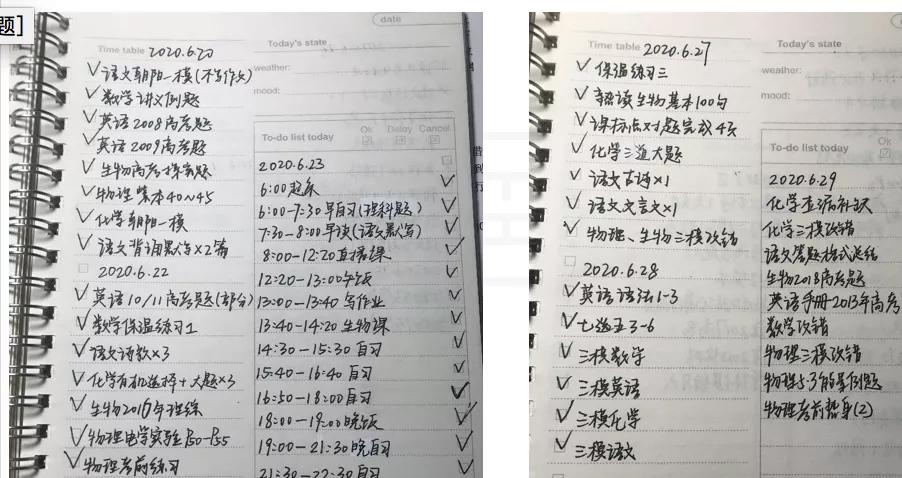 题]
date
Time table 2020.6.20
语文朝阳一模(不写作文)
数学讲义例题
英语2008高考题
英语2009高考题
生物高考探索题
物理 紫本40~45
化学朝阳一模
语文背诵默写×2篇
2020.6.22
英语10/11高考题(部分)
数学保温练习1
语文诗歌×3
化学有机选择+大题×3
生物2016年理综
物理电学实验P50-P55
物理考前练习
Today's state
weather:
mood:
To-do list today Ok Delay Cancel
2020.6.23
6:00起床
6:00-7:30早自习(理科题)
7:30-8:00早读(语文默写)
8:00-12:20直播课
12:20-13:00午饭
13:00-13:40写作业
13:40-14:20生物课
14:30-15:30自习
15:40-16:40自习
16:50-18:00自习
18:00-19:00晚饭
19:00-21:30晚自习
21:30-22:30自习
Time table 2020.6.27
保温练习三
熟读生物基本100句
课标点对题完成4页
化学三道大题
语文古诗×1
语文文言文×1
物理、生物三模改错
2020.6.28
英语语法1-3
七选五3-6
三模数学
三模英语
三模化学
三模语文
Today's state
weather:
mood:
To-do list today Ok
2020.6.29
化学查漏补缺
化学三模改错
语文答题格式总结
生物2018高考题
英语手册-2013年高考
数学改错
物理三模改错
物理5·3能量例题
物理考前热身(2)